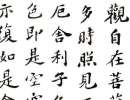 觀自在菩
多時照見
厄舍利子
色即是空空
亦復如是